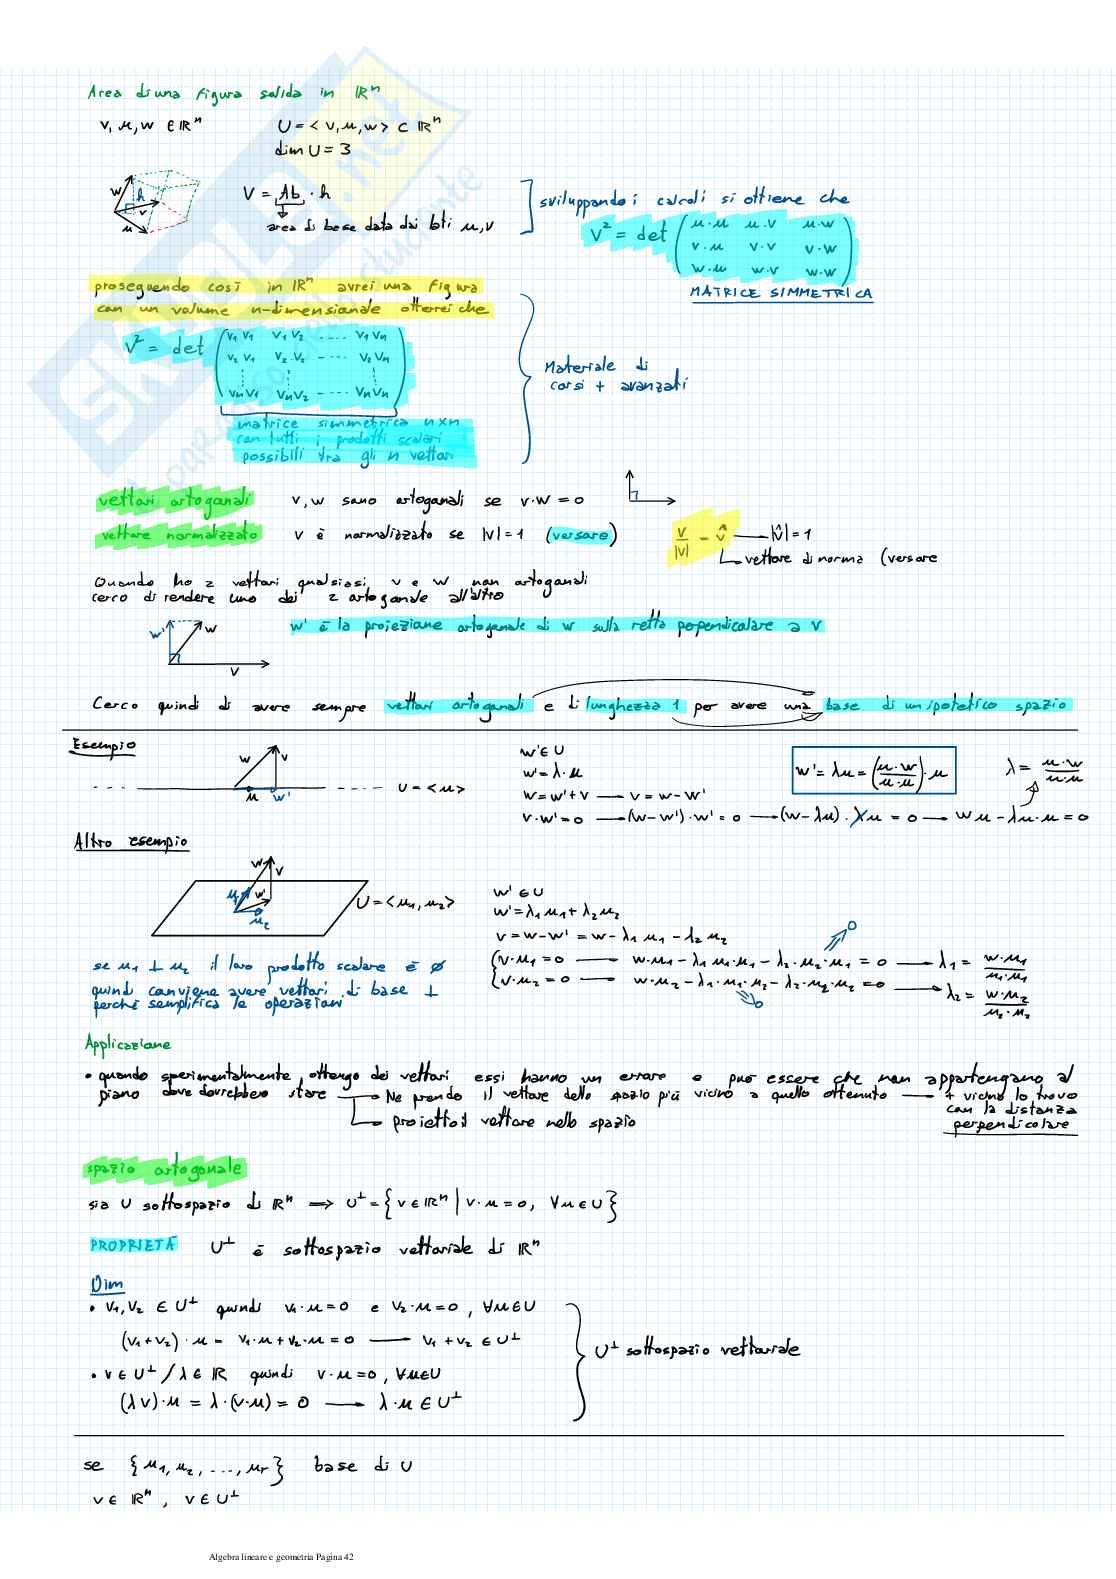 Area di una figura solida in ℝⁿ
v, u, w ∈ ℝⁿ U = < v, u, w > ⊂ ℝⁿ
dim U = 3
w h v u
V = Ab · h
area di base data dai lati u, v
sviluppando i calcoli si ottiene che
V² = det ( u·u u·v u·w
v·u v·v v·w
w·u w·v w·w )
MATRICE SIMMETRICA
proseguendo così in ℝⁿ avrei una figura
con un volume n-dimensionale otterrei che
V² = det ( v₁v₁ v₁v₂ ---- v₁vₙ
v₂v₁ v₂v₂ ---- v₂vₙ
vₙv₁ vₙv₂ ---- vₙvₙ )
matrice simmetrica n×n
con tutti i prodotti scalari
possibili tra gli n vettori
Materiale di
corsi + avanzati
vettori ortogonali v, w sono ortogonali se v·w = 0
vettore normalizzato v è normalizzato se |v| = 1 (versore)
v/|v| = v̂ — |v̂| = 1
vettore di norma (versore
Quando ho 2 vettori qualsiasi, v e w non ortogonali
cerco di rendere uno dei 2 ortogonale all'altro
w' w v
w' è la proiezione ortogonale di w sulla retta perpendicolare a v
Cerco quindi di avere sempre vettori ortogonali e di lunghezza 1 per avere una base di un ipotetico spazio
Esempio
w v u w' U = <u>
w' ∈ U
w' = λ·u
w = w' + v — v = w - w'
v·w' = 0 — (w - w')·w' = 0 — (w - λu)·λu = 0 — wu - λu·u = 0
w' = λu = (u·w / u·u)·u
λ = u·w / u·u
Altro esempio
w v u₁ w' u₂ U = <u₁, u₂>
w' ∈ U
w' = λ₁u₁ + λ₂u₂
v = w - w' = w - λ₁u₁ - λ₂u₂
{ v·u₁ = 0 — w·u₁ - λ₁u₁·u₁ - λ₂·u₂·u₁ = 0 — λ₁ = w·u₁ / u₁·u₁
{ v·u₂ = 0 — w·u₂ - λ₁·u₁·u₂ - λ₂·u₂·u₂ = 0 — λ₂ = w·u₂ / u₂·u₂
0
0
se u₁ ⊥ u₂ il loro prodotto scalare è ∅
quindi conviene avere vettori di base ⊥
perché semplifica le operazioni
Applicazione
• quando sperimentalmente ottengo dei vettori essi hanno un errore e può essere che non appartengano al
piano dove dovrebbero stare — Ne prendo il vettore dello spazio più vicino a quello ottenuto — + vicino lo trovo
con la distanza
perpendicolare
proietto il vettore nello spazio
spazio ortogonale
sia U sottospazio di ℝⁿ ⟹ U^⊥ = { v ∈ ℝⁿ | v·u = 0, ∀u ∈ U }
PROPRIETÀ U^⊥ è sottospazio vettoriale di ℝⁿ
Dim
• v₁, v₂ ∈ U^⊥ quindi v₁·u = 0 e v₂·u = 0, ∀u ∈ U
(v₁ + v₂)·u = v₁·u + v₂·u = 0 — v₁ + v₂ ∈ U^⊥
• v ∈ U^⊥ / λ ∈ ℝ quindi v·u = 0, ∀u ∈ U
(λv)·u = λ·(v·u) = 0 — λ·u ∈ U^⊥
U^⊥ sottospazio vettoriale
se {u₁, u₂, ..., uᵣ} base di U
v ∈ ℝⁿ, v ∈ U^⊥
Algebra lineare e geometria Pagina 42